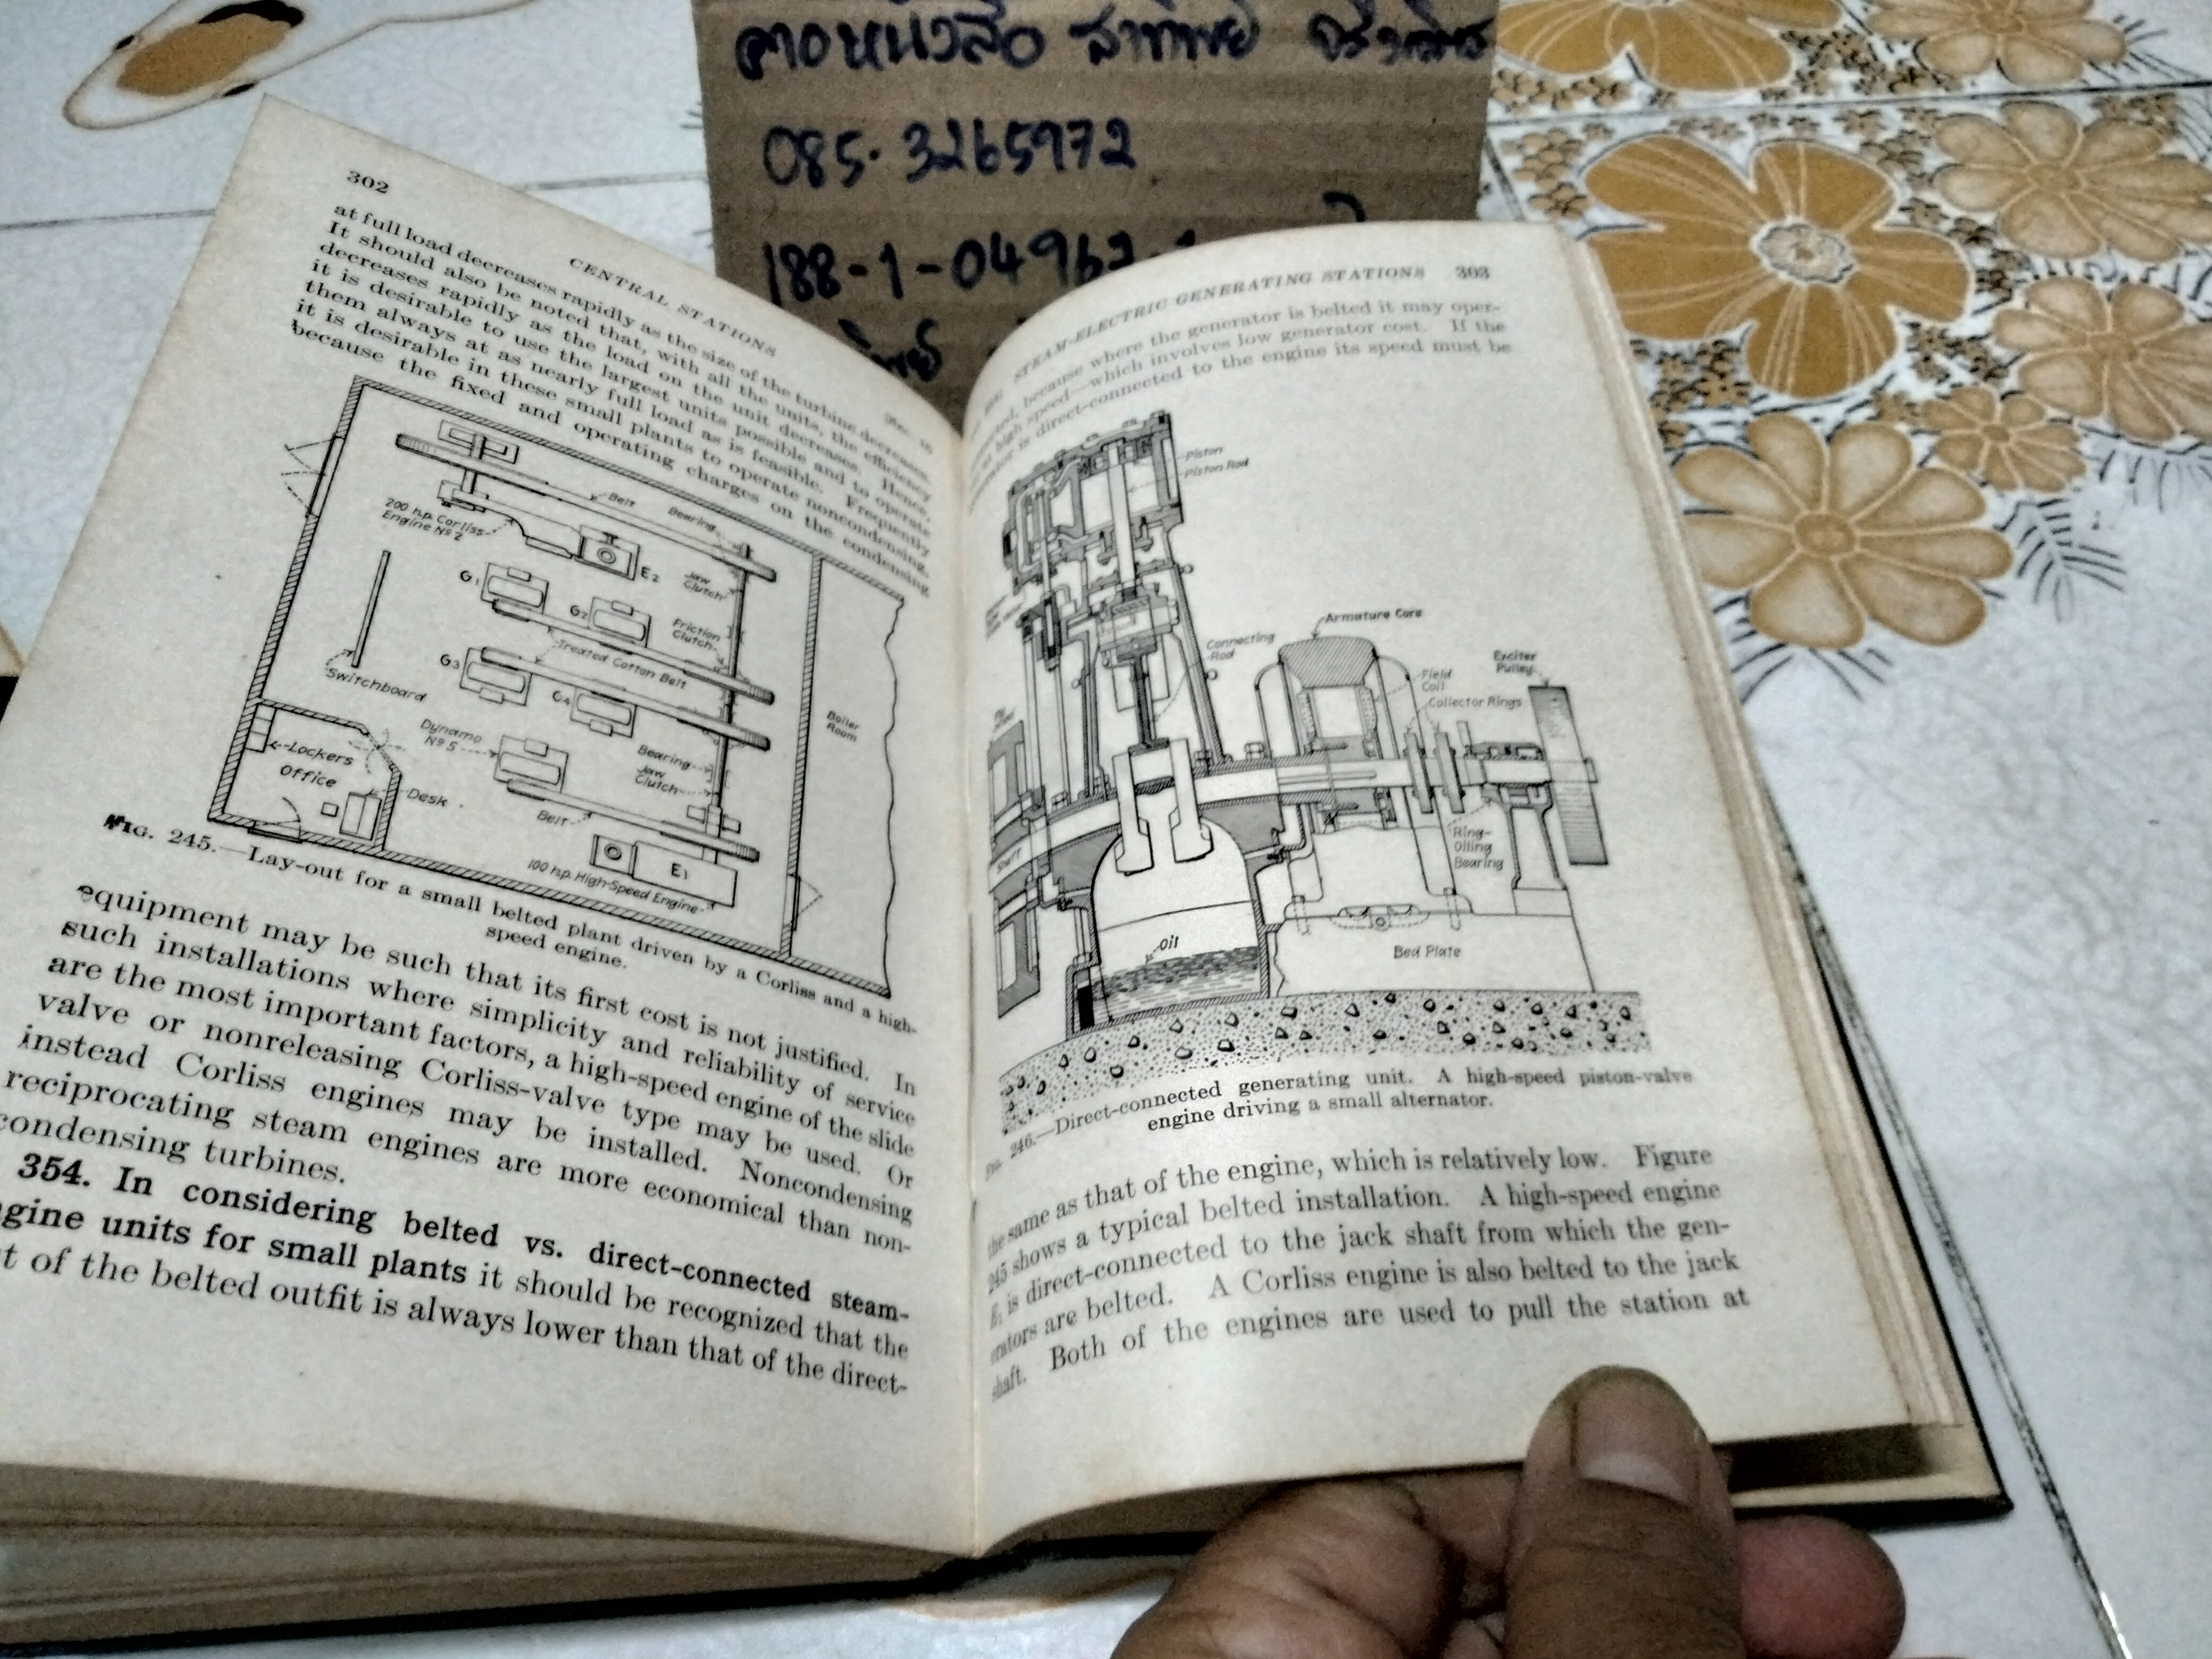 ลางหนังสือ สาทิพย์
085-3265972
188-1-04962-
302
CENTRAL STATIONS
at full load decreases rapidly as the size of the turbine decreases.
It should also be noted that, with all the units, the efficiency
decreases rapidly as the load on the unit decreases. Hence,
it is desirable to use the largest units possible and to operate
them always at as nearly full load as is feasible. Frequently
it is desirable in these small plants to operate noncondensing,
because the fixed and operating charges on the condensing
Belt
Bearing
200 h.p. Corliss
Engine Nº 2
E2
Jaw
Clutch
G1
G2
Friction
Clutch
Treated Cotton Belt
G3
G4
Switchboard
Boiler
Room
Dynamo
Nº 5
Bearing
Jaw
Clutch
Lockers
Office
Desk
Belt
100 h.p. High-Speed Engine
E1
FIG. 245.—Lay-out for a small belted plant driven by a Corliss and a high-
speed engine.
equipment may be such that its first cost is not justified. In
such installations where simplicity and reliability of service
are the most important factors, a high-speed engine of the slide
valve or nonreleasing Corliss-valve type may be used. Or
instead Corliss engines may be installed. Noncondensing
reciprocating steam engines are more economical than non-
condensing turbines.
354. In considering belted vs. direct-connected steam-
engine units for small plants it should be recognized that the
of the belted outfit is always lower than that of the direct-
STEAM-ELECTRIC GENERATING STATIONS 303
because where the generator is belted it may oper-
high speed—which involves low generator cost. If the
is direct-connected to the engine its speed must be
Piston
Piston Rod
Connecting
Rod
Armature Core
Field
Coil
Collector Rings
Exciter
Pulley
Shaft
Ring-
Oiling
Bearing
Oil
Bed Plate
FIG. 246.—Direct-connected generating unit. A high-speed piston-valve
engine driving a small alternator.
the same as that of the engine, which is relatively low. Figure
245 shows a typical belted installation. A high-speed engine
E1 is direct-connected to the jack shaft from which the gen-
erators are belted. A Corliss engine is also belted to the jack
shaft. Both of the engines are used to pull the station at